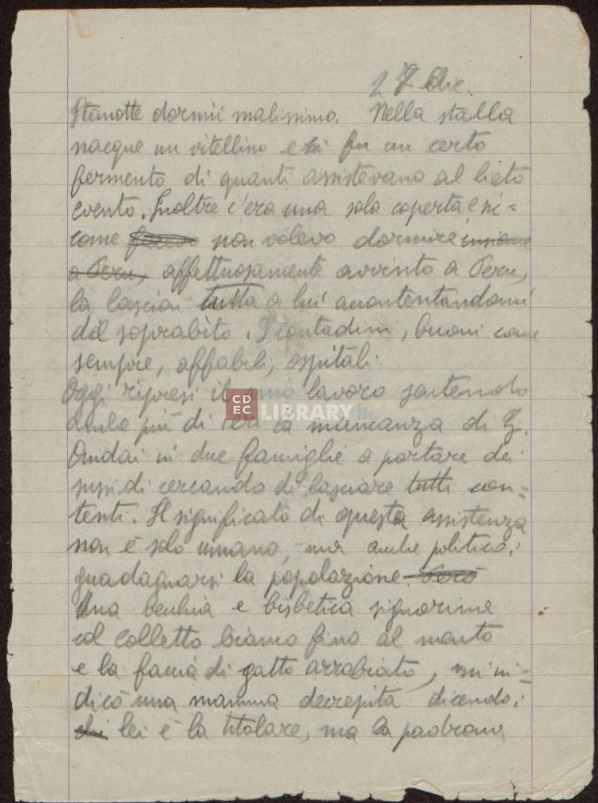 27 Dic.
Stanotte dormii malissimo. Nella stalla
nacque un vitellino e vi fu un certo
fermento di quanti assistevano al lieto
evento. Inoltre c'era una sola coperta e sic-
come non volevo dormire insieme
a Peru, affettuosamente avvinto a Peru,
la lasciai tutta a lui accontentandomi
del soprabito. I contadini, buoni come
sempre, affabili, ospitali.
Oggi ripresi il mio lavoro sentendo
anche più di ieri la mancanza di G.
Andai in due famiglie a portare dei
sussidi cercando di lasciare tutti con-
tenti. Il significato di questa assistenza
non è solo umano, ma anche politico:
guadagnarsi la popolazione. Però
Una vecchia e bisbetica signorina
col colletto bianco fino al mento
e la faccia di gatto arrabbiato, mi in-
dicò una mamma decrepita dicendo:
lei è la titolare, ma la padrona
CDEC LIBRARY